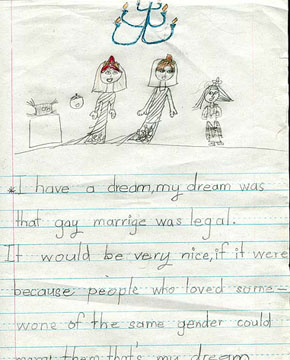 *I have a dream, my dream was
that gay marrige was legal.
It would be very nice, if it were
because people who loved some-
wone of the same gender could
marry them that's my dream